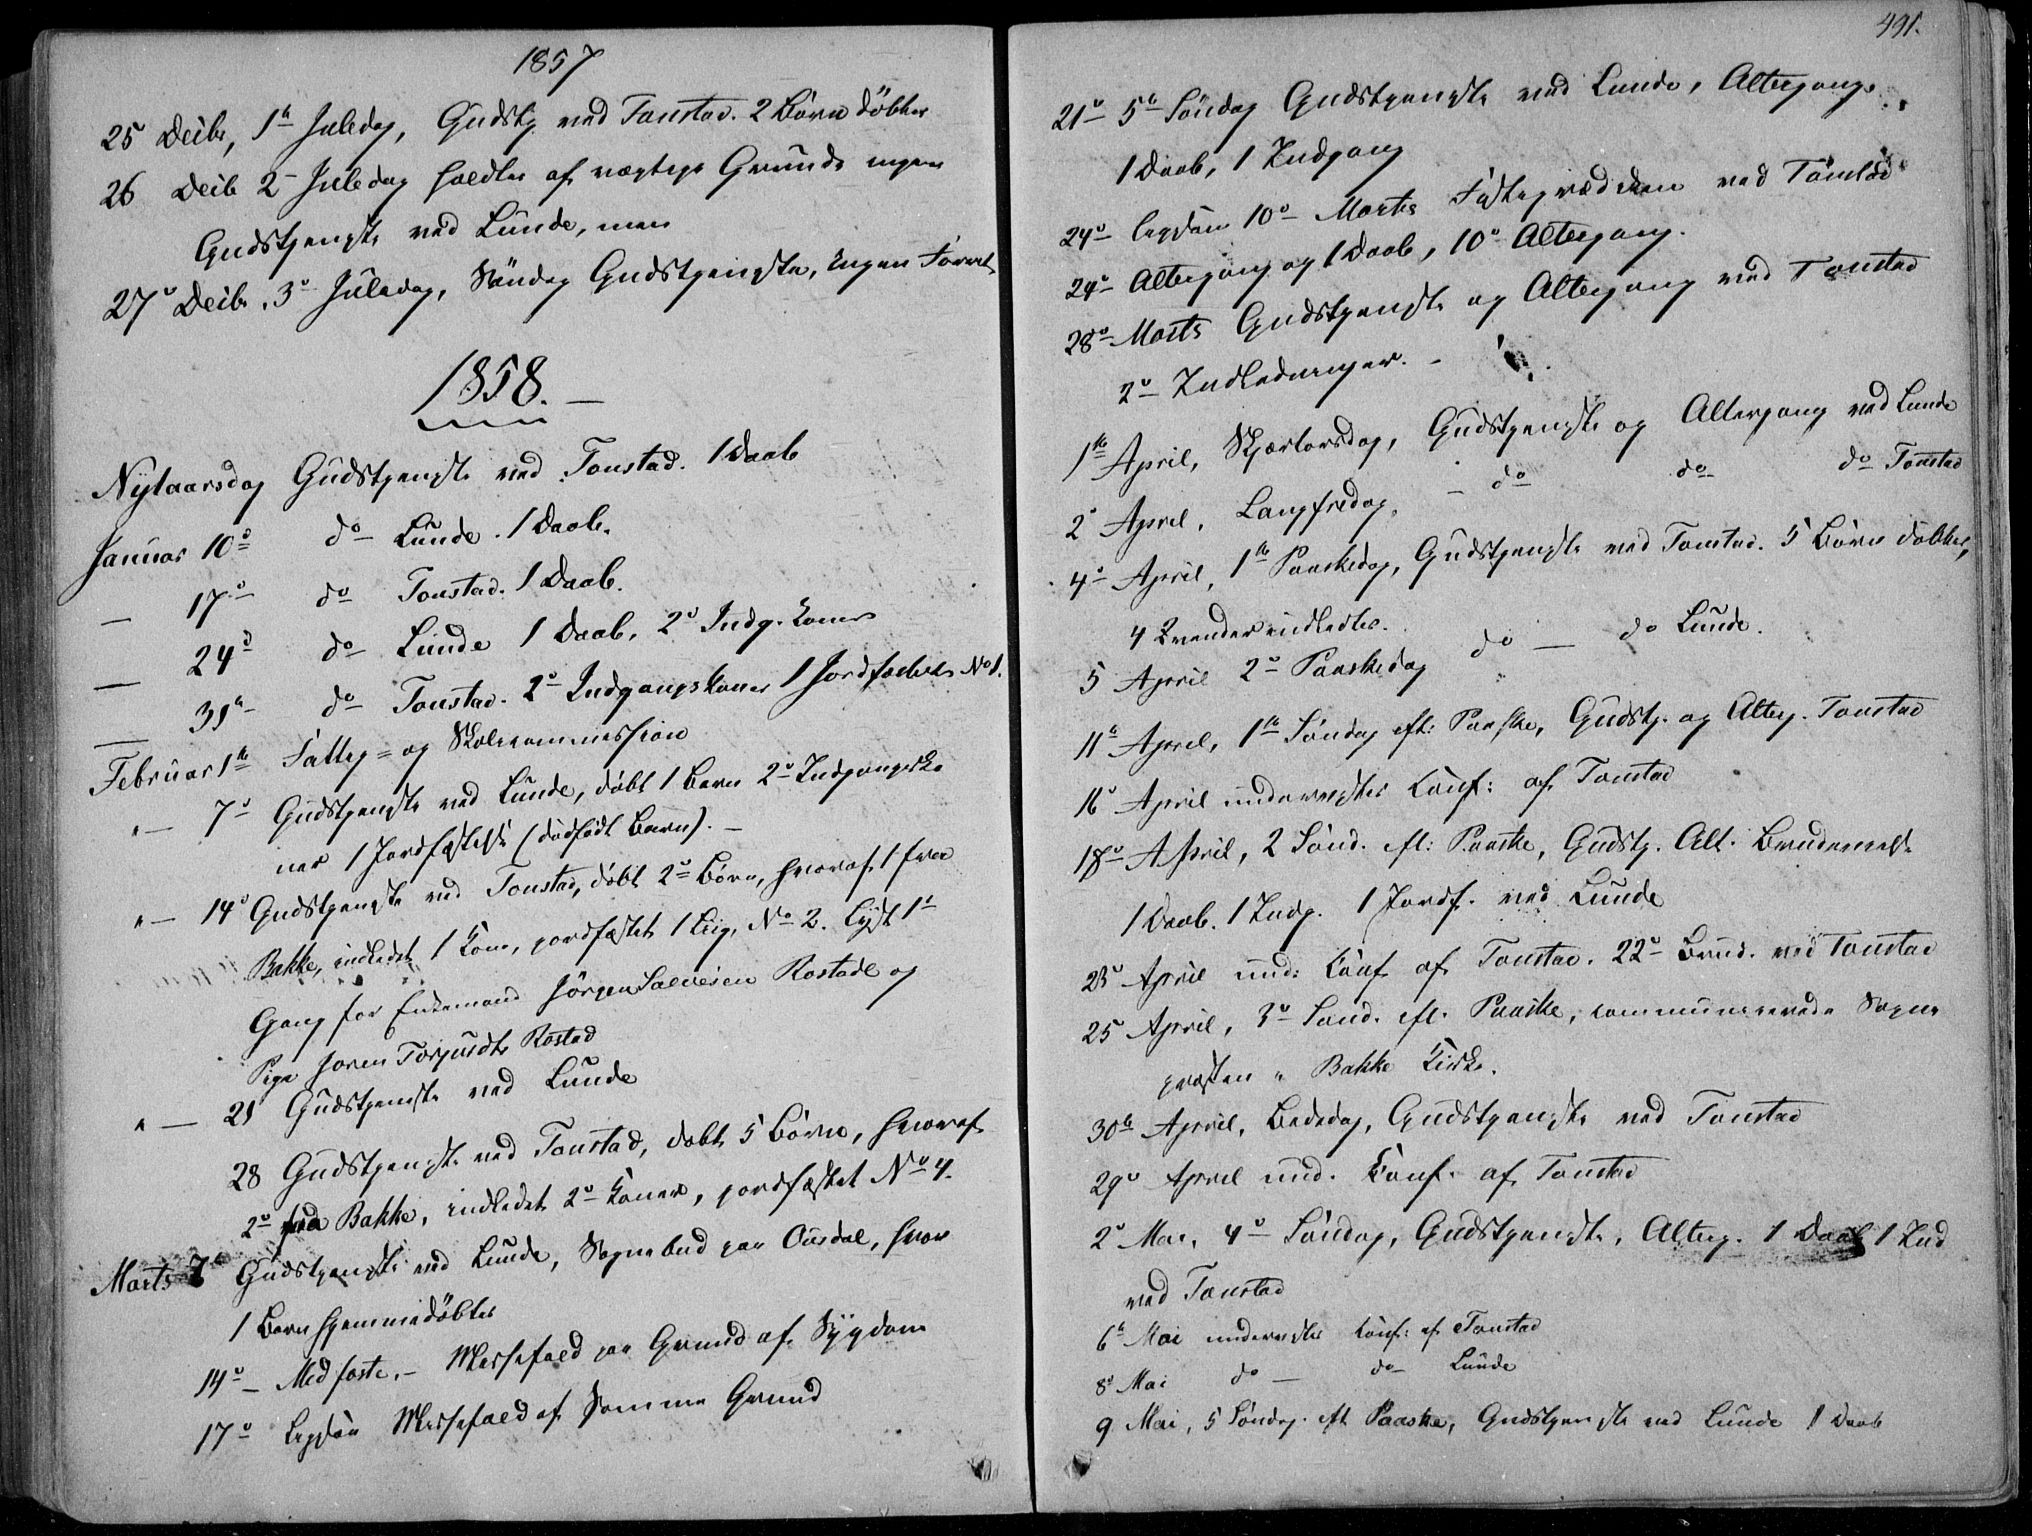 1857
25 Decbr, 1ste Juledag, Gudstj ved Tonstad. 2 Børn døbtes
26 Decbr 2den Juledag holdtes af vigtige Grunde ingen
Gudstjeneste ved Lunde, men
27de Decbr. 3die Juledag, Søndag Gudstjeneste, Ingen Forret.
1858.
Nytaarsdag Gudstjeneste ved Tonstad. 1 Daab
Januar 10de do Lunde. 1 Daab.
— 17de do Tonstad. 1 Daab.
— 24de do Lunde 1 Daab, 2de Indg. koner
— 31te do Tonstad. 2de Indgangskoner 1 Jordfæstelse No 1.
Februar 1ste Fattig= og Skolecommission
"— 7de Gudstjeneste ved Lunde, døbt 1 Barn 2de Indgangsko
ner 1 Jordfæstelse (dødfødt Barn). —
"— 14de Gudstjeneste ved Tonstad, døbt 2de Børn, hvoraf 1 fra
Bakke, indledet 1 Kone, jordfæstet 1 Liig, No 2. Lyst 1ste
Gang for Enkemand Jørgen Salvesen Rostade og
Pige Joren Torjusdtr Rostad
"— 21 Gudstjeneste ved Lunde
28 Gudstjeneste ved Tonstad, døbt 5 Børn, hvoraf
2de fra Bakke, indledet 2de Koner, jordfæstet No 4.
Marts 7de Gudstjeneste ved Lunde, Sognebud paa Ousdal, hvor
1 Barn hjemmedøbtes
14de — Midfaste, — Messefald paa Grund af Sygdom
17de Messefald af samme Grund
491.
21de 5te Søndag Gudstjeneste ved Lunde, Altergang,
1 Daab, 1 Indgang
24de 10de Marts Fasteprædiken ved Tonstad
24de Altergang og 1 Daab, 10de Altergang.
28de Marts Gudstjeneste og Altergang ved Tonstad
2de Indledninger. —
1ste April, Skjærtorsdag, Gudstjeneste og Altergang ved Lunde
2 April, Langfredag, — do do do Tonstad
4de April, 1ste Paaskedag, Gudstjeneste ved Tonstad. 5 Børn døbtes,
4 Qvinder indledtes.
5 April 2den Paaskedag do — do Lunde.
11te April, 1ste Søndag eft: Paaske, Gudstj. og Alterg. Tonstad
16de April underviistes Conf: af Tonstad
18de April, 2 Sønd. eft: Paaske, Gudstj. Alt.
1 Daab. 1 Indg. 1 Jordf. ved Lunde
23de April und: Conf. af Tonstad. 22de Brud. ved Tonstad
25de April, 3die Sønd. eft. Paaske, communicerede Sogne
præsten i Bakke Kirke.
30te April, Bededag, Gudstjeneste ved Tonstad
29de April und. Conf. af Tonstad
2den Mai, 4de Søndag, Gudstjeneste, Alterg. 1 Daab 1 Ind
ved Tonstad
6te Mai underviistes Conf: af Tonstad
8de Mai do — do Lunde
9 Mai, 5 Søndag. eft Paaske, Gudstjeneste ved Lunde 1 Daab